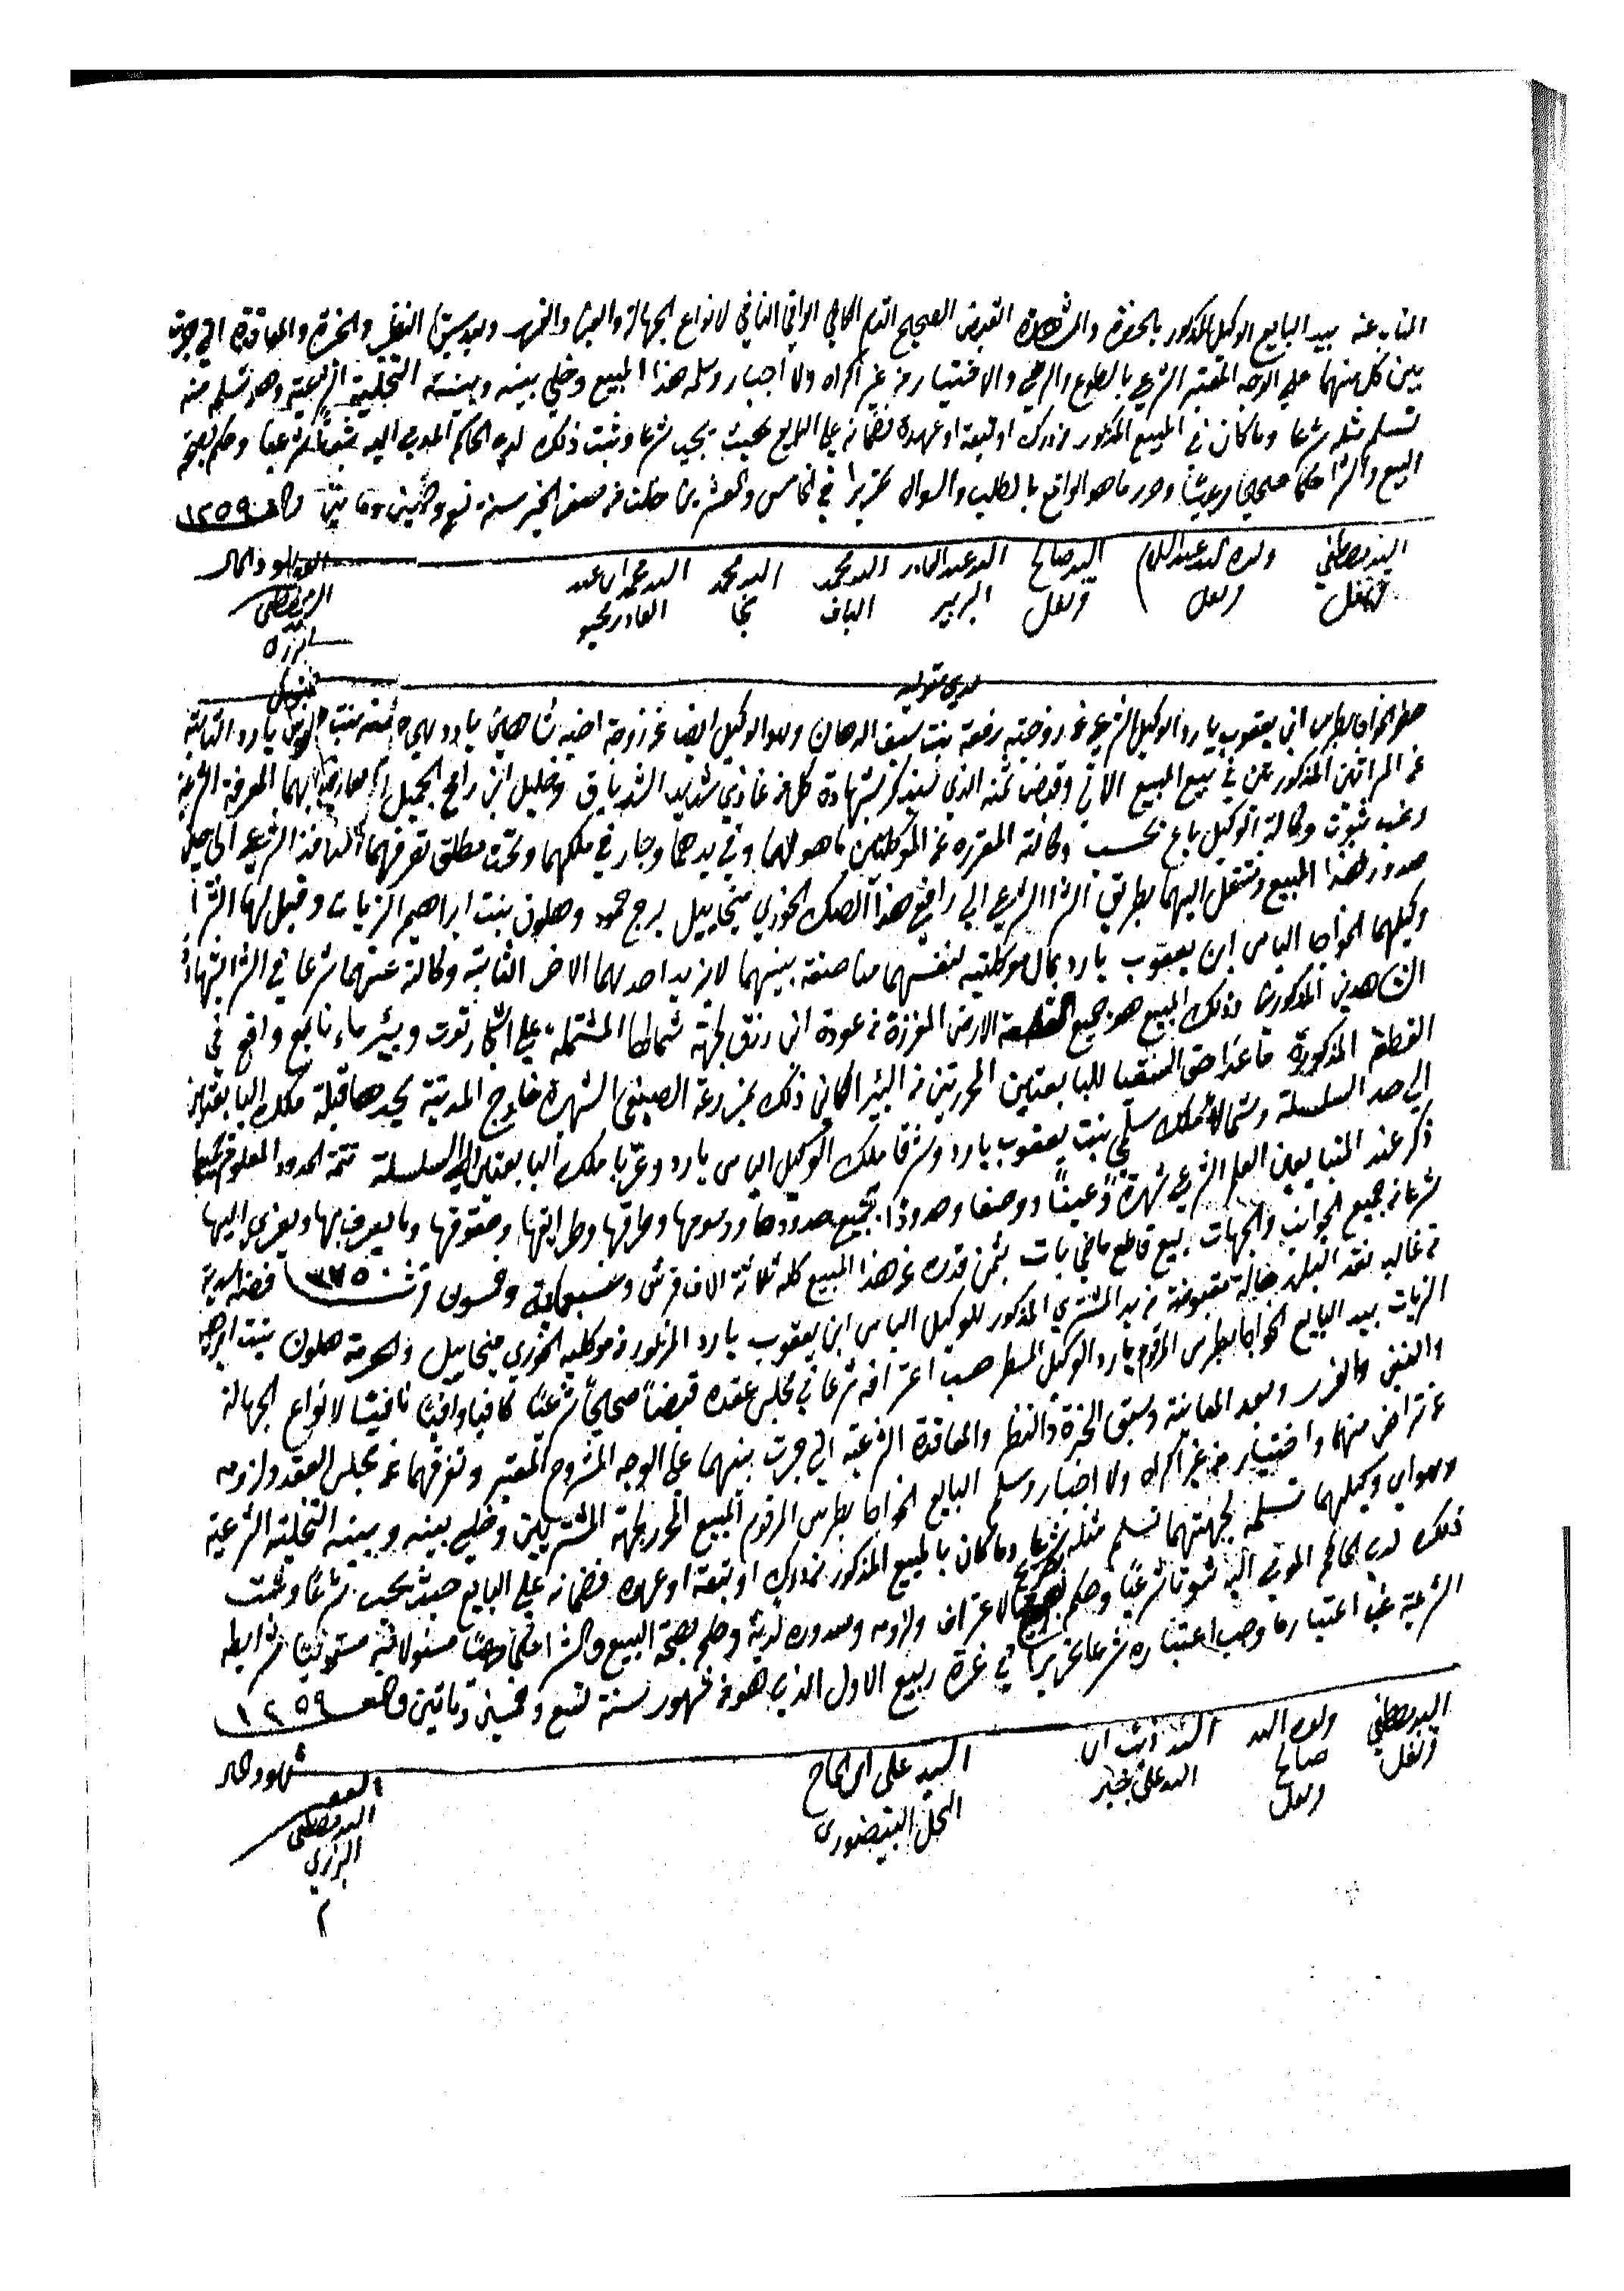 الثابت عنه بيد البايع الوكيل المذكور بالحضرة والمشاهدة القبض الصحيح التام الكافي الوافي النافي لانواع الجهالة والغبن والغرر وبعد سبق النظر والخبرة والمعاقدة التي جرت
بين كل منهما على الوجه المعتبر الشرعي بالطوع والرضى والاختيار من غير اكراه ولا اجبار وسلمه هذا المبيع وخلي بينه وبينه التخلية الشرعية وهو تسلمه منه
تسلم مثله شرعا وما كان في المبيع المذكور من درك او تبعة او عهدة فضمانه على البايع بحيث يجب شرعا وثبت ذلك لدي الحاكم المومى اليه ثبوتا شرعيا وحكم بصحة
البيع والشرا حكما صحيحا مرعيا وحرر ما هو الواقع بالطلب والسوال تحريرا في الخامس والعشرين خلت من صفر الخير سنة تسع وخمسين وماتين والف ١٢٥٩
السيد مصطفى قرنفل
ولده السيد عبد السلام قرنفل
السيد صالح قرنفل
السيد عبد القادر البربير
السيد محمد الباف
السيد محمد نجا
السيد محمد ابن عبد القادر نحيو
شهود الحال
السيد مصطفى البزري
لدى متوليه
حضر الخواجا بطرس ابن يعقوب يارد الوكيل الشرعي عن زوجته رفقة بنت سيف الدهان وهو الوكيل ايضا عن زوجة اخيه شاهين يارد بنت يارد الثابتة
عن المراتين المذكورتين في بيع المبيع الاتي وقبض ثمنه الذي سيذكر بشهادة كل من غازي شديد الشدياق وخليل ابن رافع الجميل العارفين بهما المعرفة الشرعية
وغب ثبوت وكالة الوكيل باع بحسب وكالته المقررة عن الموكلتين ما هو لهما وفي يدهما وجار في ملكهما وتحت مطلق تصرفهما النافذ الشرعي الى حين
صدور هذا المبيع ومنتقل اليهما بطريق الشرا الشرعي الى رافعي هذا الصك الخوري ميخاييل برج حمود وهلون بنت ابراهيم الزيات وقبل لهما الشرا
وكيلهما الخواجا الياس ابن يعقوب يارد بمال موكليه لنفسهما مناصفة بينهما لا يزيد احدهما الاخر الثابتة وكالته عنهما شرعا في الشرا بشهادة
الشاهدين المذكورين وذلك المبيع هو جميع القطعة الارض المفرزة من عودة ابن رزق لجهة شمالها المشتملة على اشجار توت وبير ماء نابع واقع في
القطعة المذكورة ما عدا حق السقيا للبايعتين المحررتين من البير الكاين ذلك بمزرعة الصيفي الشهيرة خارج المدينة يحدها قبلة ملك البايعتين
الى حد السلسلة وشمالا ملك سلمى بنت يعقوب يارد وشرقا ملك الوكيل الياس يارد وغربا ملك البايعتين الى السلسلة تتمة الحدود المعلوم جميعها
ذكر عند المتبايعين العلم الشرعي شهرة وعينا ووصفا وحدودا بجميع حدودها ورسومها وطرقها وطرايقها وحقوقها وما يعرف بها ويعزى اليها
شرعا من جميع الجوانب والجهات بيع قاطع ماضي بات بثمن قدره عن هذا المبيع كله ثلاثة الاف قرش وسبعماية وخمسون قرش ٣٧٥٠ فضة اسدية
من غالب نقد البلد حالة مقبوضة من يد المشتري المذكور للوكيل الياس ابن يعقوب يارد المزبور من موكليه الخوري ميخاييل والحرمة هلون بنت ابراهيم
الزيات بيد البايع الخواجا بطرس المرقوم يارد الوكيل المسطر حسب اعترافه شرعا في مجلس عقده قبضا صحيحا شرعيا كافيا وافيا نافيا لانواع الجهالة
والغبن والغرر وبعد المعاينة وسبق الخبرة والنظر والمعاقدة الشرعية التي جرت بينهما على الوجه المشروح المعتبر وتفرقهما عن مجلس العقد ولزومه
عن تراض منهما واختيار من غير اكراه ولا اجبار وسلم البايع الخواجا بطرس المرقوم المبيع المحرر لجهة المشتريين وخلي بينه وبينه التخلية الشرعية
وهو اي وكيلهما تسلمه لجهتهما تسلم مثله شرعا وما كان بالمبيع المذكور من درك او تبعة او عهدة فضمانه على البايع حيث يجب شرعا وثبت
ذلك لدي الحاكم المومى اليه ثبوتا شرعيا وحكم الاعتراف ولزومه وصدوره لديه وحكم بصحة البيع والشرا حكما مسئولا فيه مستوفيا شرايطه
الشرعية غب اعتبار ما وجب اعتباره شرعا تحريرا في غرة ربيع الاول الذي هو من شهور سنة تسع وخمسين وماتين والف ١٢٥٩
السيد مصطفى قرنفل
وولده السيد صالح قرنفل
السيد علي
السيد علي ابن الحاج
شهود الحال
السيد مصطفى البزري